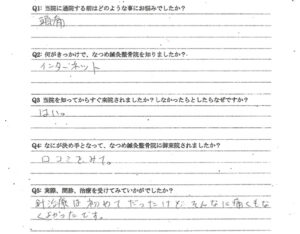 Q1: 当院に通院する前はどのような事にお悩みでしたか?
頭痛
Q2: 何がきっかけで、なつめ鍼灸整骨院を知りましたか?
インターネット
Q3 当院を知ってからすぐ来院されましたか?しなかったとしたらなぜですか?
はい。
Q4: なにが決め手となって、なつめ鍼灸整骨院に御来院されましたか?
口コミをみて。
Q5: 実際、問診、治療を受けてみていかがでしたか?
針治療は初めてだったけど、そんなに痛くもな
くよかったです。